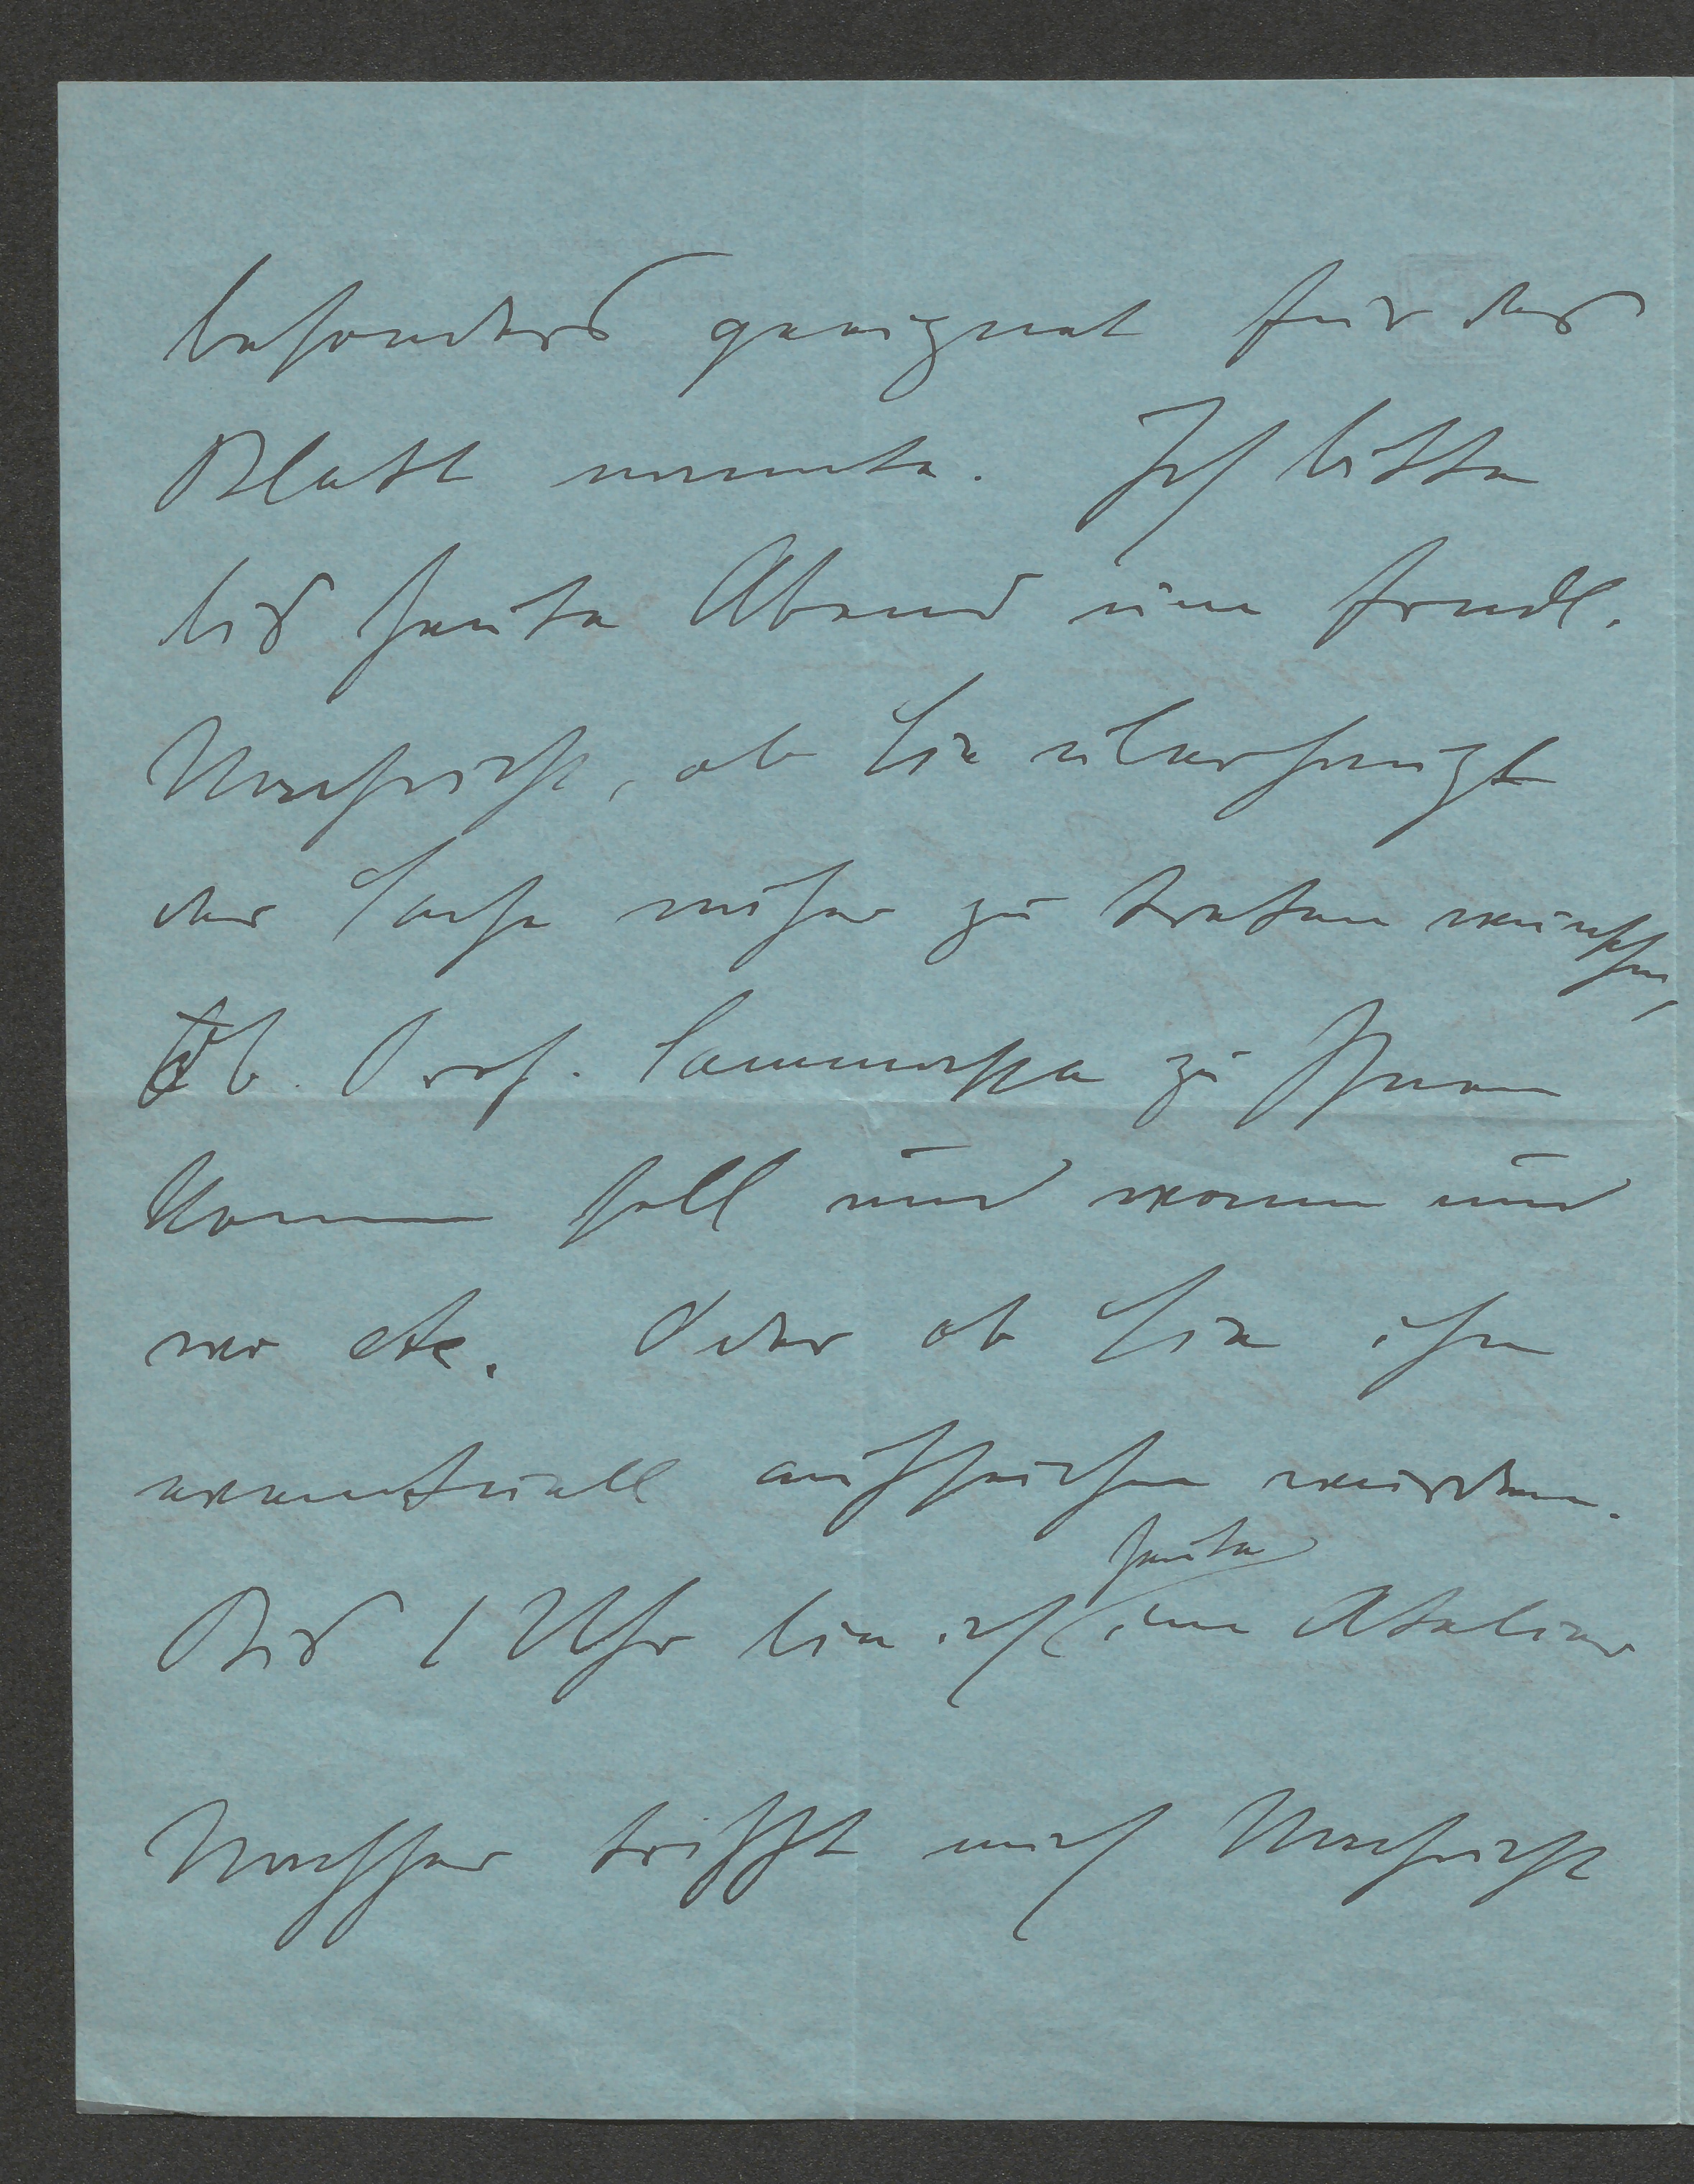 besonders geeignet für das
Blatt nannte. Ich bitte
bis heute Abend um frndl.
Nachricht, ob Sie überhaupt
der Sache näher zu treten wünschen,
Ob Prof. zu Ihnen
kommen soll und wann und
wo etc. Oder ob Sie ihn
eventuell aufsuchen würden.
heute
Bis 1 Uhr bin ich im Atelier
Nachher trifft mich Nachricht